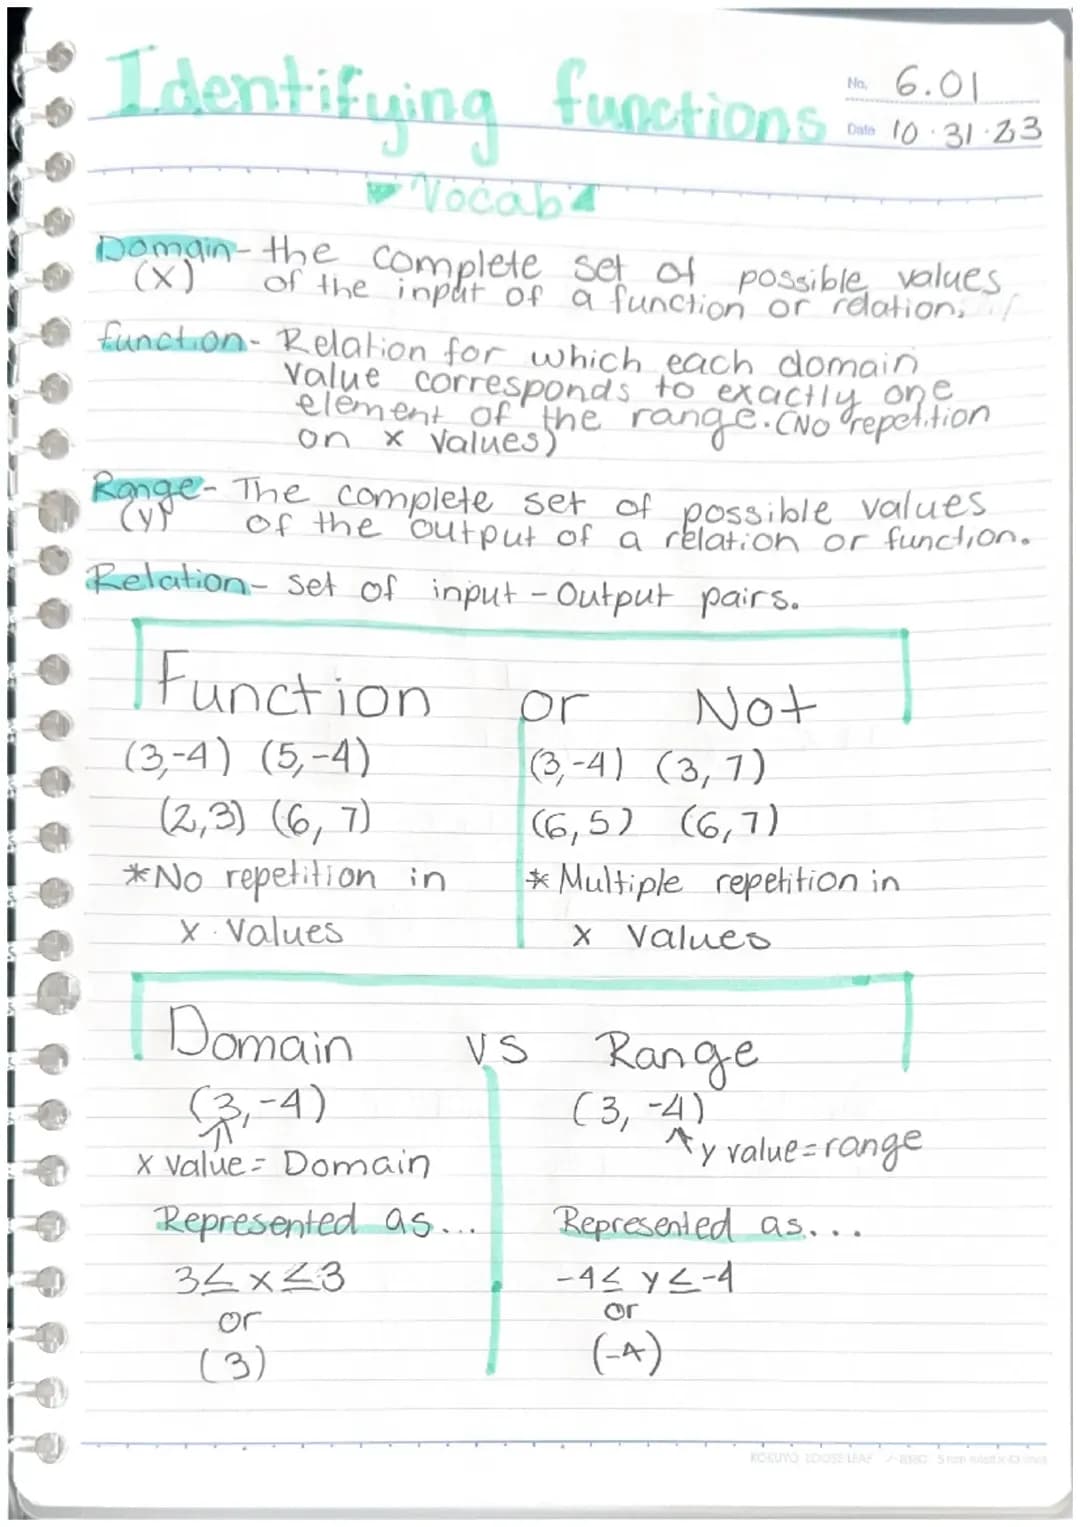 Identifying functions
No. 6.01
Date 10.31.23
Vocab
Domain- the complete set of possible values
(X) of the input of a function or relation.
function- Relation for which each domain
value corresponds to exactly one
element of the range. (No repetition
on x values)
Range- The complete set of possible values
(y) of the output of a relation or function.
Relation- set of input-Output pairs.
Function or Not
(3,-4) (5,-4)
(2,3) (6,7)
*No repetition in
x values
(3,-4) (3,7)
(6,5) (6,7)
* Multiple repetition in
x values
Domain VS Range
(3,-4)
x value = Domain
Represented as...
3≤ x ≤3
or
(3)
(3,-4)
y value = range
Represented as...
-4≤ y ≤-4
or
(-4)
KOKUYO LOOSE LEAF